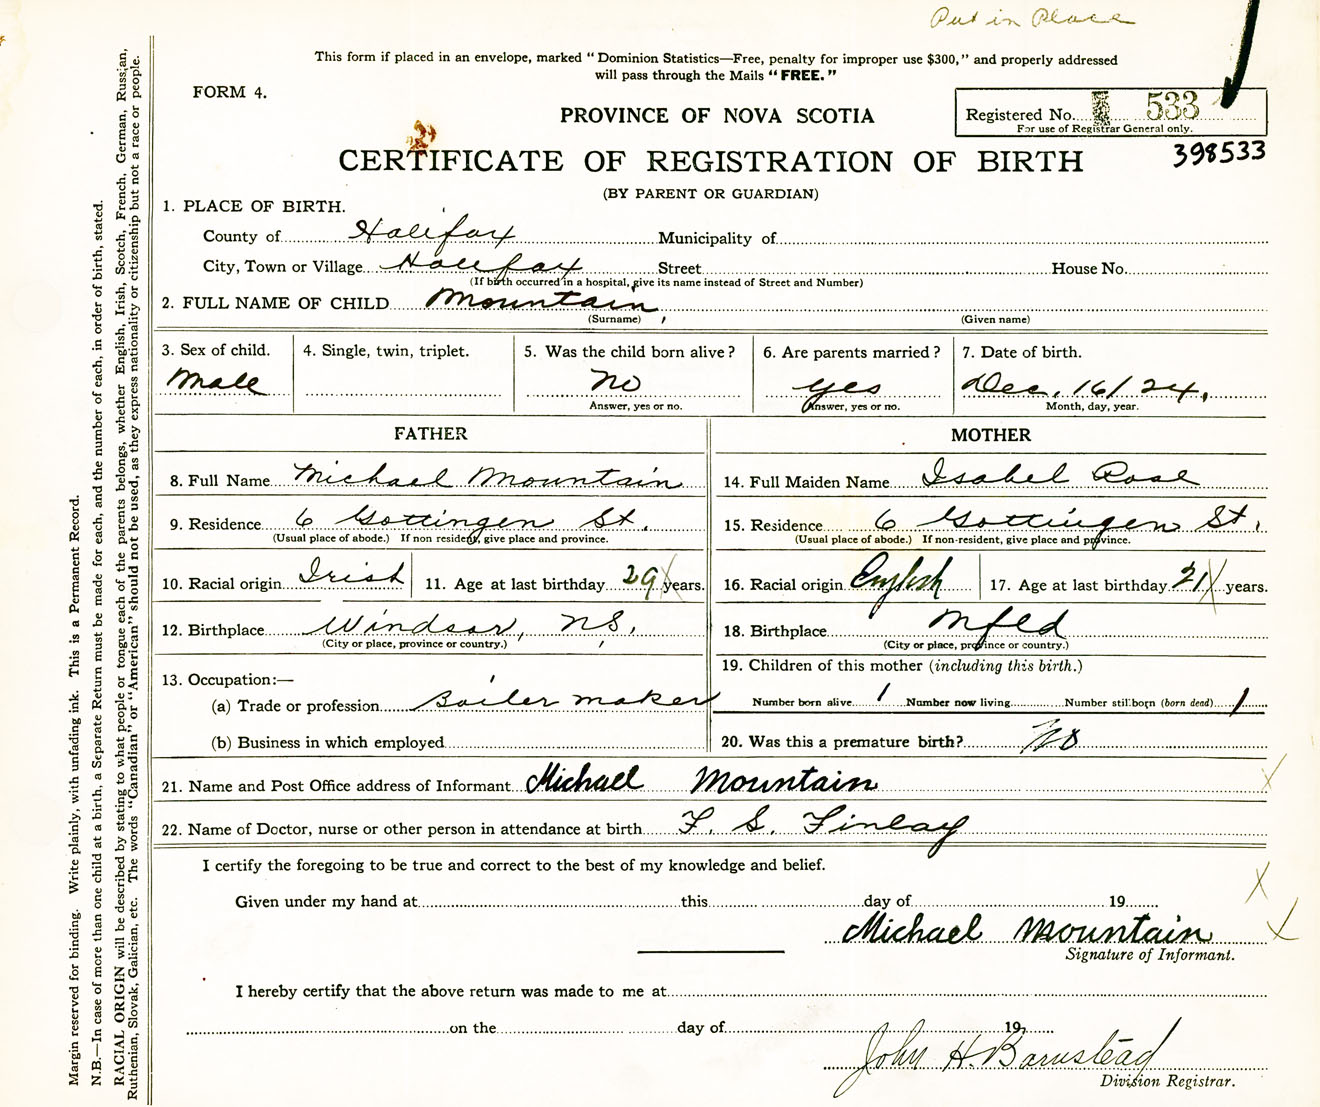 Put in Place
This form if placed in an envelope, marked "Dominion Statistics—Free, penalty for improper use $300," and properly addressed
will pass through the Mails "FREE."
FORM 4.
PROVINCE OF NOVA SCOTIA
Registered No. 533
For use of Registrar General only.
398533
CERTIFICATE OF REGISTRATION OF BIRTH
(BY PARENT OR GUARDIAN)
1. PLACE OF BIRTH.
County of Halifax Municipality of
City, Town or Village Halifax Street House No.
(If birth occurred in a hospital, give its name instead of Street and Number)
2. FULL NAME OF CHILD Mountain,
(Surname) (Given name)
3. Sex of child. 4. Single, twin, triplet. 5. Was the child born alive? 6. Are parents married? 7. Date of birth.
Male No yes Dec. 16/24.
Answer, yes or no. Answer, yes or no. Month, day, year.
FATHER MOTHER
8. Full Name Michael Mountain 14. Full Maiden Name Isabel Rose
9. Residence 6 Gottingen St. 15. Residence 6 Gottingen St.
(Usual place of abode.) If non resident, give place and province. (Usual place of abode.) If non-resident, give place and province.
10. Racial origin Irish 11. Age at last birthday 29 years. 16. Racial origin English 17. Age at last birthday 21 years.
12. Birthplace Windsor, N.S. 18. Birthplace Nfld
(City or place, province or country.) (City or place, province or country.)
19. Children of this mother (including this birth.)
13. Occupation:—
(a) Trade or profession Boiler maker Number born alive 1 Number now living Number stillborn (born dead) 1
(b) Business in which employed 20. Was this a premature birth? No
21. Name and Post Office address of Informant Michael Mountain
22. Name of Doctor, nurse or other person in attendance at birth F. S. Finlay
I certify the foregoing to be true and correct to the best of my knowledge and belief.
Given under my hand at this day of 19
Michael Mountain
Signature of Informant.
I hereby certify that the above return was made to me at
on the day of 19
John H. Barnstead
Division Registrar.
Margin reserved for binding. Write plainly, with unfading ink. This is a Permanent Record.
N.B.—In case of more than one child at a birth, a Separate Return must be made for each, and the number of each, in order of birth, stated.
RACIAL ORIGIN will be described by stating to what people or tongue each of the parents belongs, whether English, Irish, Scotch, French, German, Russian,
Ruthenian, Slovak, Galician, etc. The words "Canadian" or "American" should not be used, as they express nationality or citizenship but not a race or people.